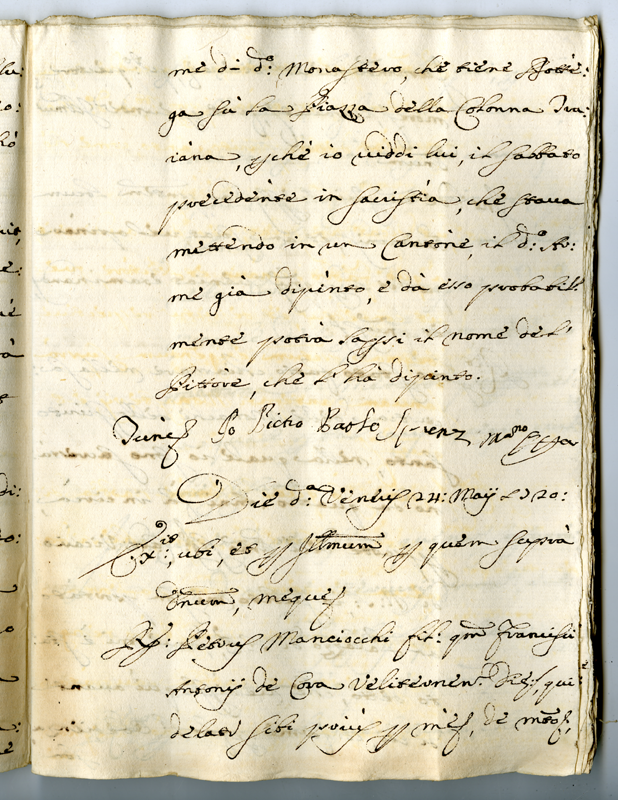 me di d.º Monastero, che tiene Botte:
ga sù La Piazza della Colonna Tra:
iàna, pché io viddi lui, il sabbato
precedente in sacristia, che stava
mettendo in un Cantone, il d.º A:
me già dipinto, e dà esso probabil:
mente potrà sapsi il nome del
Pittore, che l'hà dipinto.
Io Pietro Paolo mano
Die d.ª Veneris 24: Maij 1720:
Ex.: ubi, et p Illmum, p quem suprà
Dnum, meque
Petrus Manciocchi fil: qm Francisci
Antonij de Cora Veliternen: Dies, qui
delato sibi p me, de